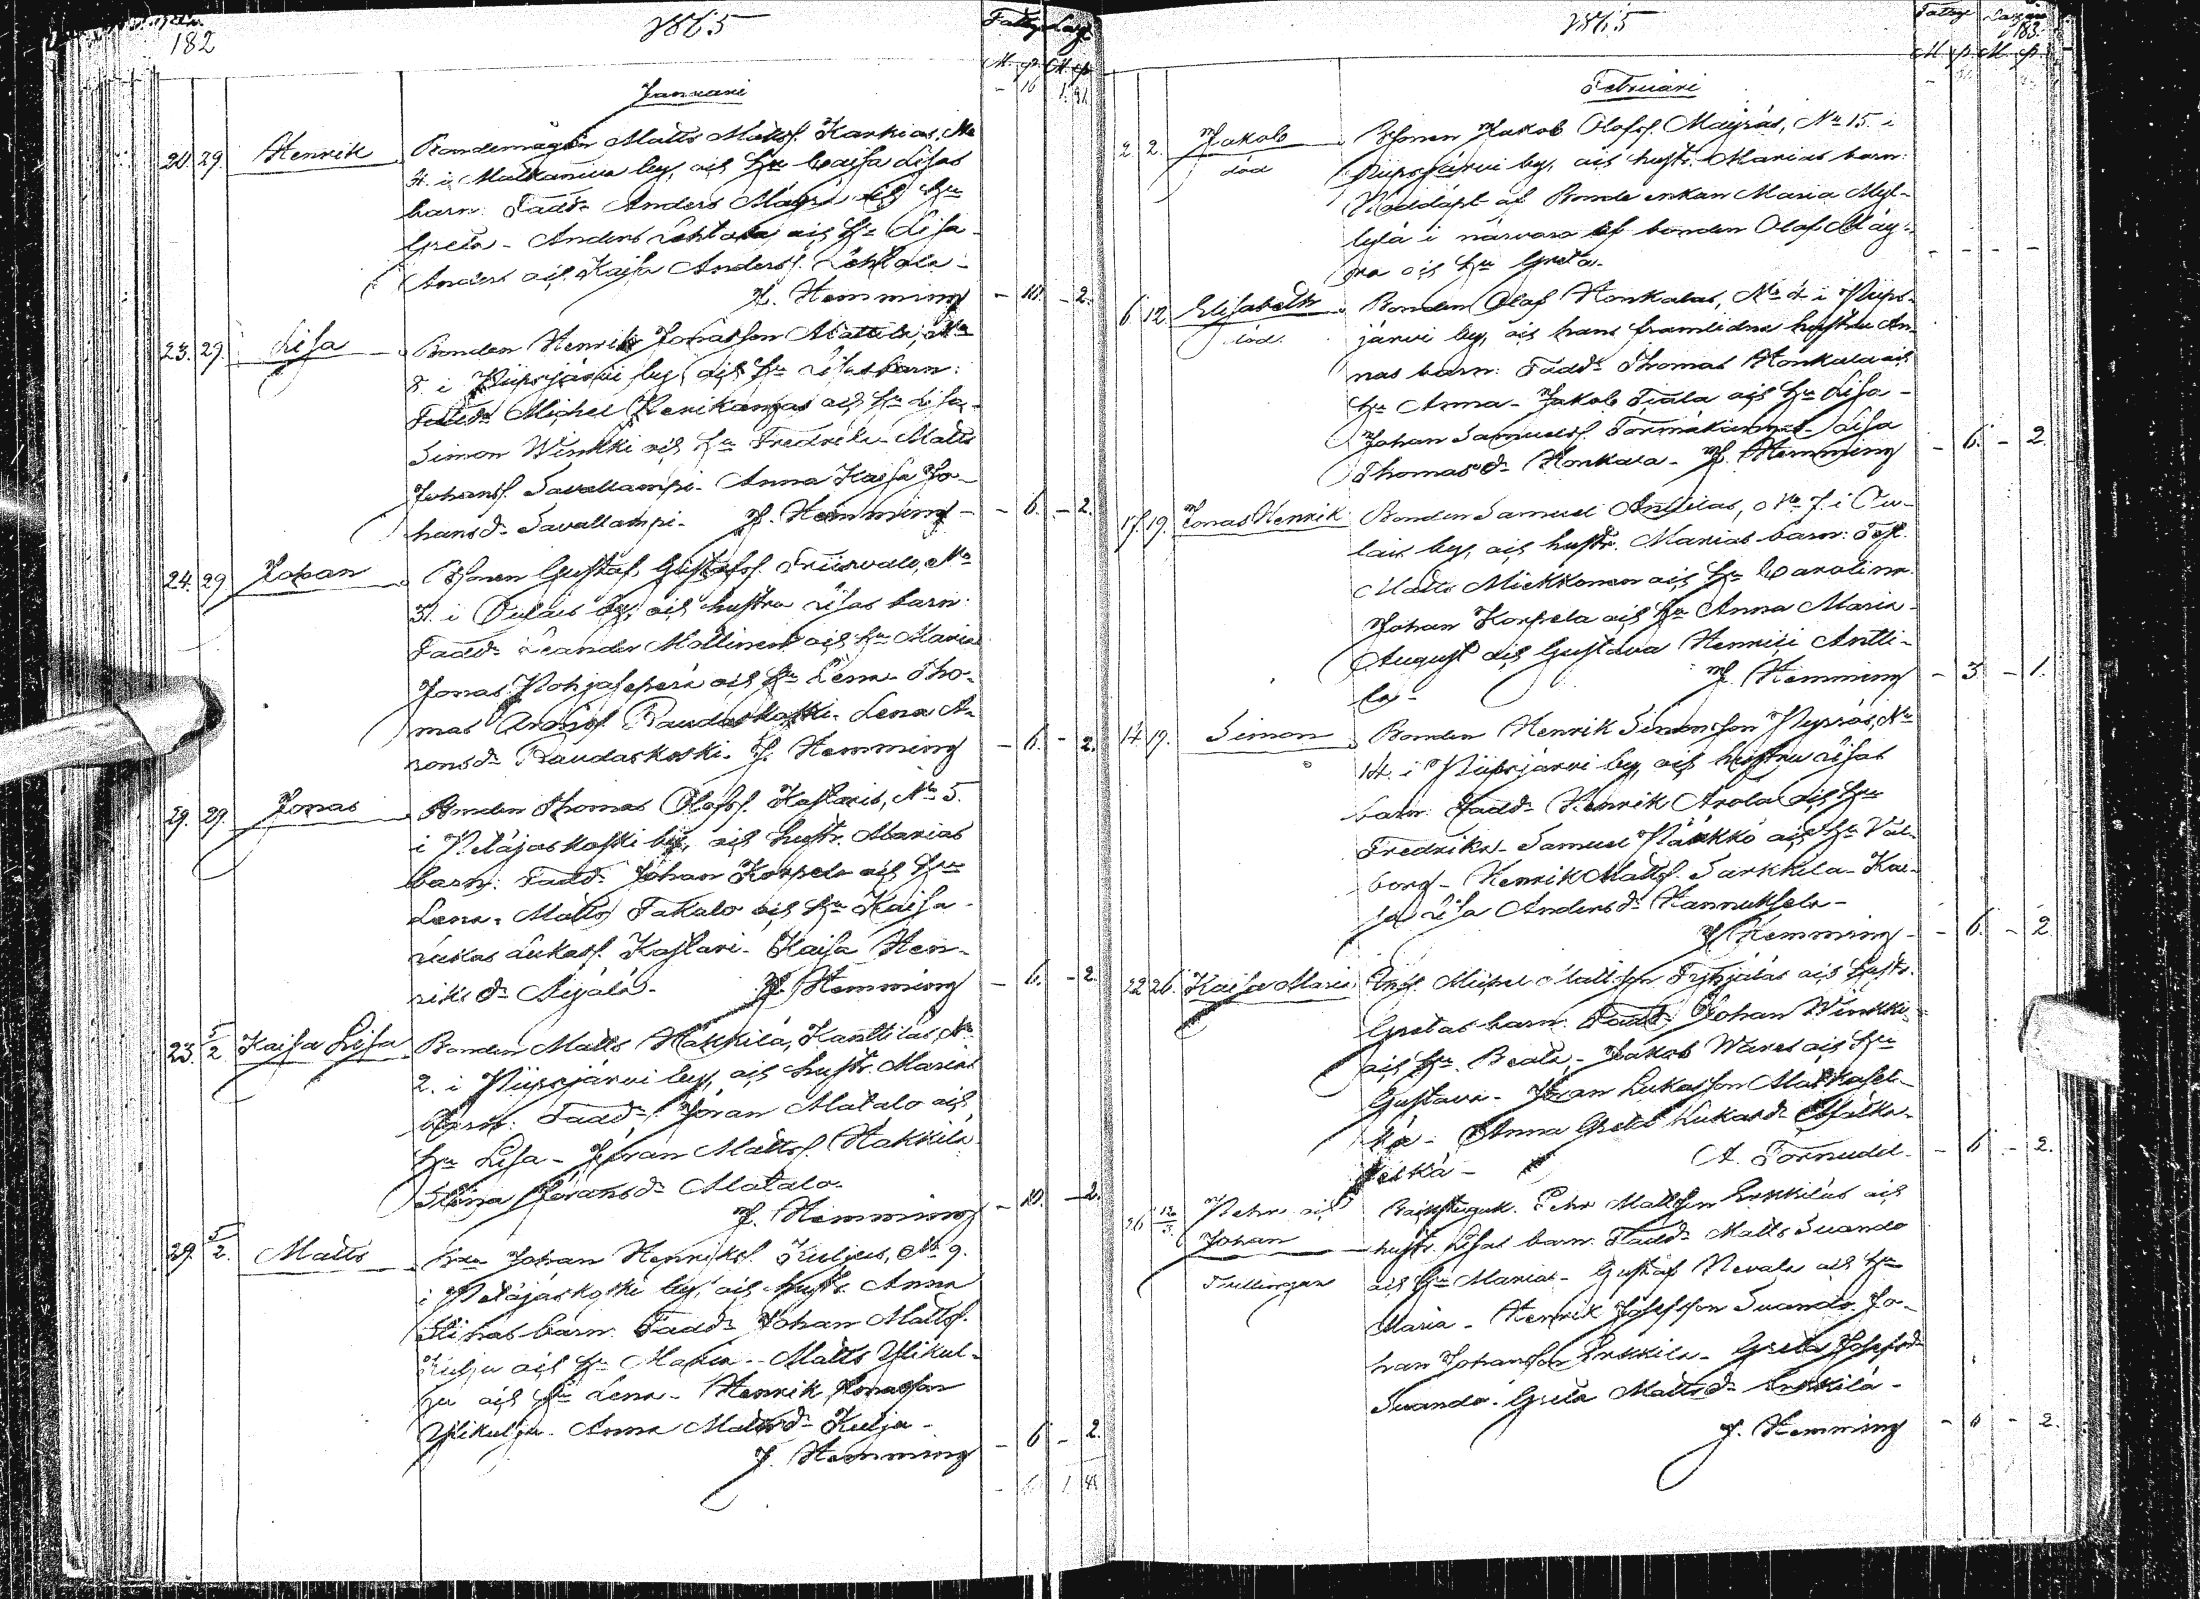 182
1865
Januari
20. 29. Henrik
Bondemågen Matts Matts. Karkias, No
4. i Matkaniva by, och hu Caisa Lisas
barn: Fadd. Anders Mäyrä och hu
Greta - Anders Lehtola och hu Lisa -
Anders och Kajsa Anders. Lehtola -
J. Hemming - 10. - 2.
23. 29. Lisa
Bonden Henrik Jonasson Mattila, No
8. i Piipsjärvi by, och hu Lisas barn:
Fadd. Michel och hu Lisa -
Simon Winkki och hu Fredrika - Matts
Johans. Savallampi - Anna Kajsa Jo-
hansd. Savallampi. J. Hemming - - 6. - 2.
24. 29 Johan
Gustaf Gustafs. No
31. i Oulais by, och hustru Lisas barn:
Fadd. Leander och hu Maria
Jonas Pohjasperä och hu Lena - Tho-
mas Arons. Raudaskoski - Lena A-
ronsd. Raudaskoski. J. Hemming - 6. - 2.
29. 29. Jonas
Bonden Thomas Olofs. Kastaris, No 5.
i Petäjäskoski by, och hustr. Marias
barn: Fadd. Johan Korpela och hu
Lena - Matts Takalo och hu Kaisa -
Lukas Lukass. Kastari - Kaisa Hen-
riksd. Äijälä - J. Hemming - 6. - 2.
23. 5/2. Kaisa Lisa
Bonden Matts Häkkilä, Kanttilas, No
2. i Piipsjärvi by, och hustr. Marias
barn: Fadd. Jöran Matalo och
hu Lisa - Jöran Matts. Häkkilä
Stina Göransd. Matalo.
J. Hemming - 10. - 2.
29. 5/2. Matts
Johan Henriks. Kuljus, No 9.
i Petäjäskoski by, och hustr. Anna
Stinas barn: Fadd. Johan Matts.
Kulju och hu Maria - Matts Ylikul-
ju och hu Lena - Henrik Jonasson
Ylikulju - Anna Mattsd. Kulja -
J. Hemming - 6 - 2.
1865
183.
Februari
2. 2. Jakob
död
Jakob Olofs. Mäyräs, No 15. i
Piipsjärvi by, och hustr. Marias barn:
Nöddöpt af Bonde enkan Maria Myl-
lylä i närvaro af bonden Olof Mäy-
rä och hu Greta. - - - -
6 12 Elisabeth
död.
Bonden Olof Honkalas, No 4 i Piips-
järvi by, och hans framlidna hustru An-
nas barn: Fadd. Thomas Honkala och
hu Anna - Jakob Tiala och hu Lisa -
Johan Samuels. Törmäkangas - Lisa
Thomasd. Honkala - J. Hemming - 6. - 2.
17. 19. Jonas Henrik
Bonden Samuel Anttilas, No 7. i Ou-
lais by, och hustr. Marias barn: Test.
Matts Mickkonen och hu Carolina.
Johan Korpela och hu Anna Maria -
August och Gustava Henrici Antti-
la - J. Hemming - 3 - 1.
14 19. Simon
Bonden Henrik Simonsson Pyrräs, No
14. i Piipsjärvi by, och hustru Lisas
barn: Fadd. Henrik Arola och hu
Fredrika - Samuel Pääkkö och hu Val-
borg - Henrik Matts. Särkkelä - Kai-
sa Lisa Andersd. Hannuksela -
J. Hemming - - 6. - 2
22 26. Kaisa Maria
Michel Mattsson och hustr.
Gretas barn: Fadd. Johan Winkki
och hu Beata - Jakob Wares och hu
Gustava - Jöran Lukasson Matkasel-
kä - Anna Greta Lukasd. Matka-
selkä - A. Törnudd. - 6 - 2.
26 12/3. Petter och
Johan
Tvillingar
Pehr Mattsson Erkkiläs och
hustr. Lisas barn: Fadd. Matts Suando
och hu Maria - Gustaf Nevala och hu
Maria - Henrik Josefsson Suando - Jo-
han Johansson Erkkilä - Greta Josefsd.
Suando - Greta Mattsd. Erkkilä -
J. Hemming - 6 - 2.